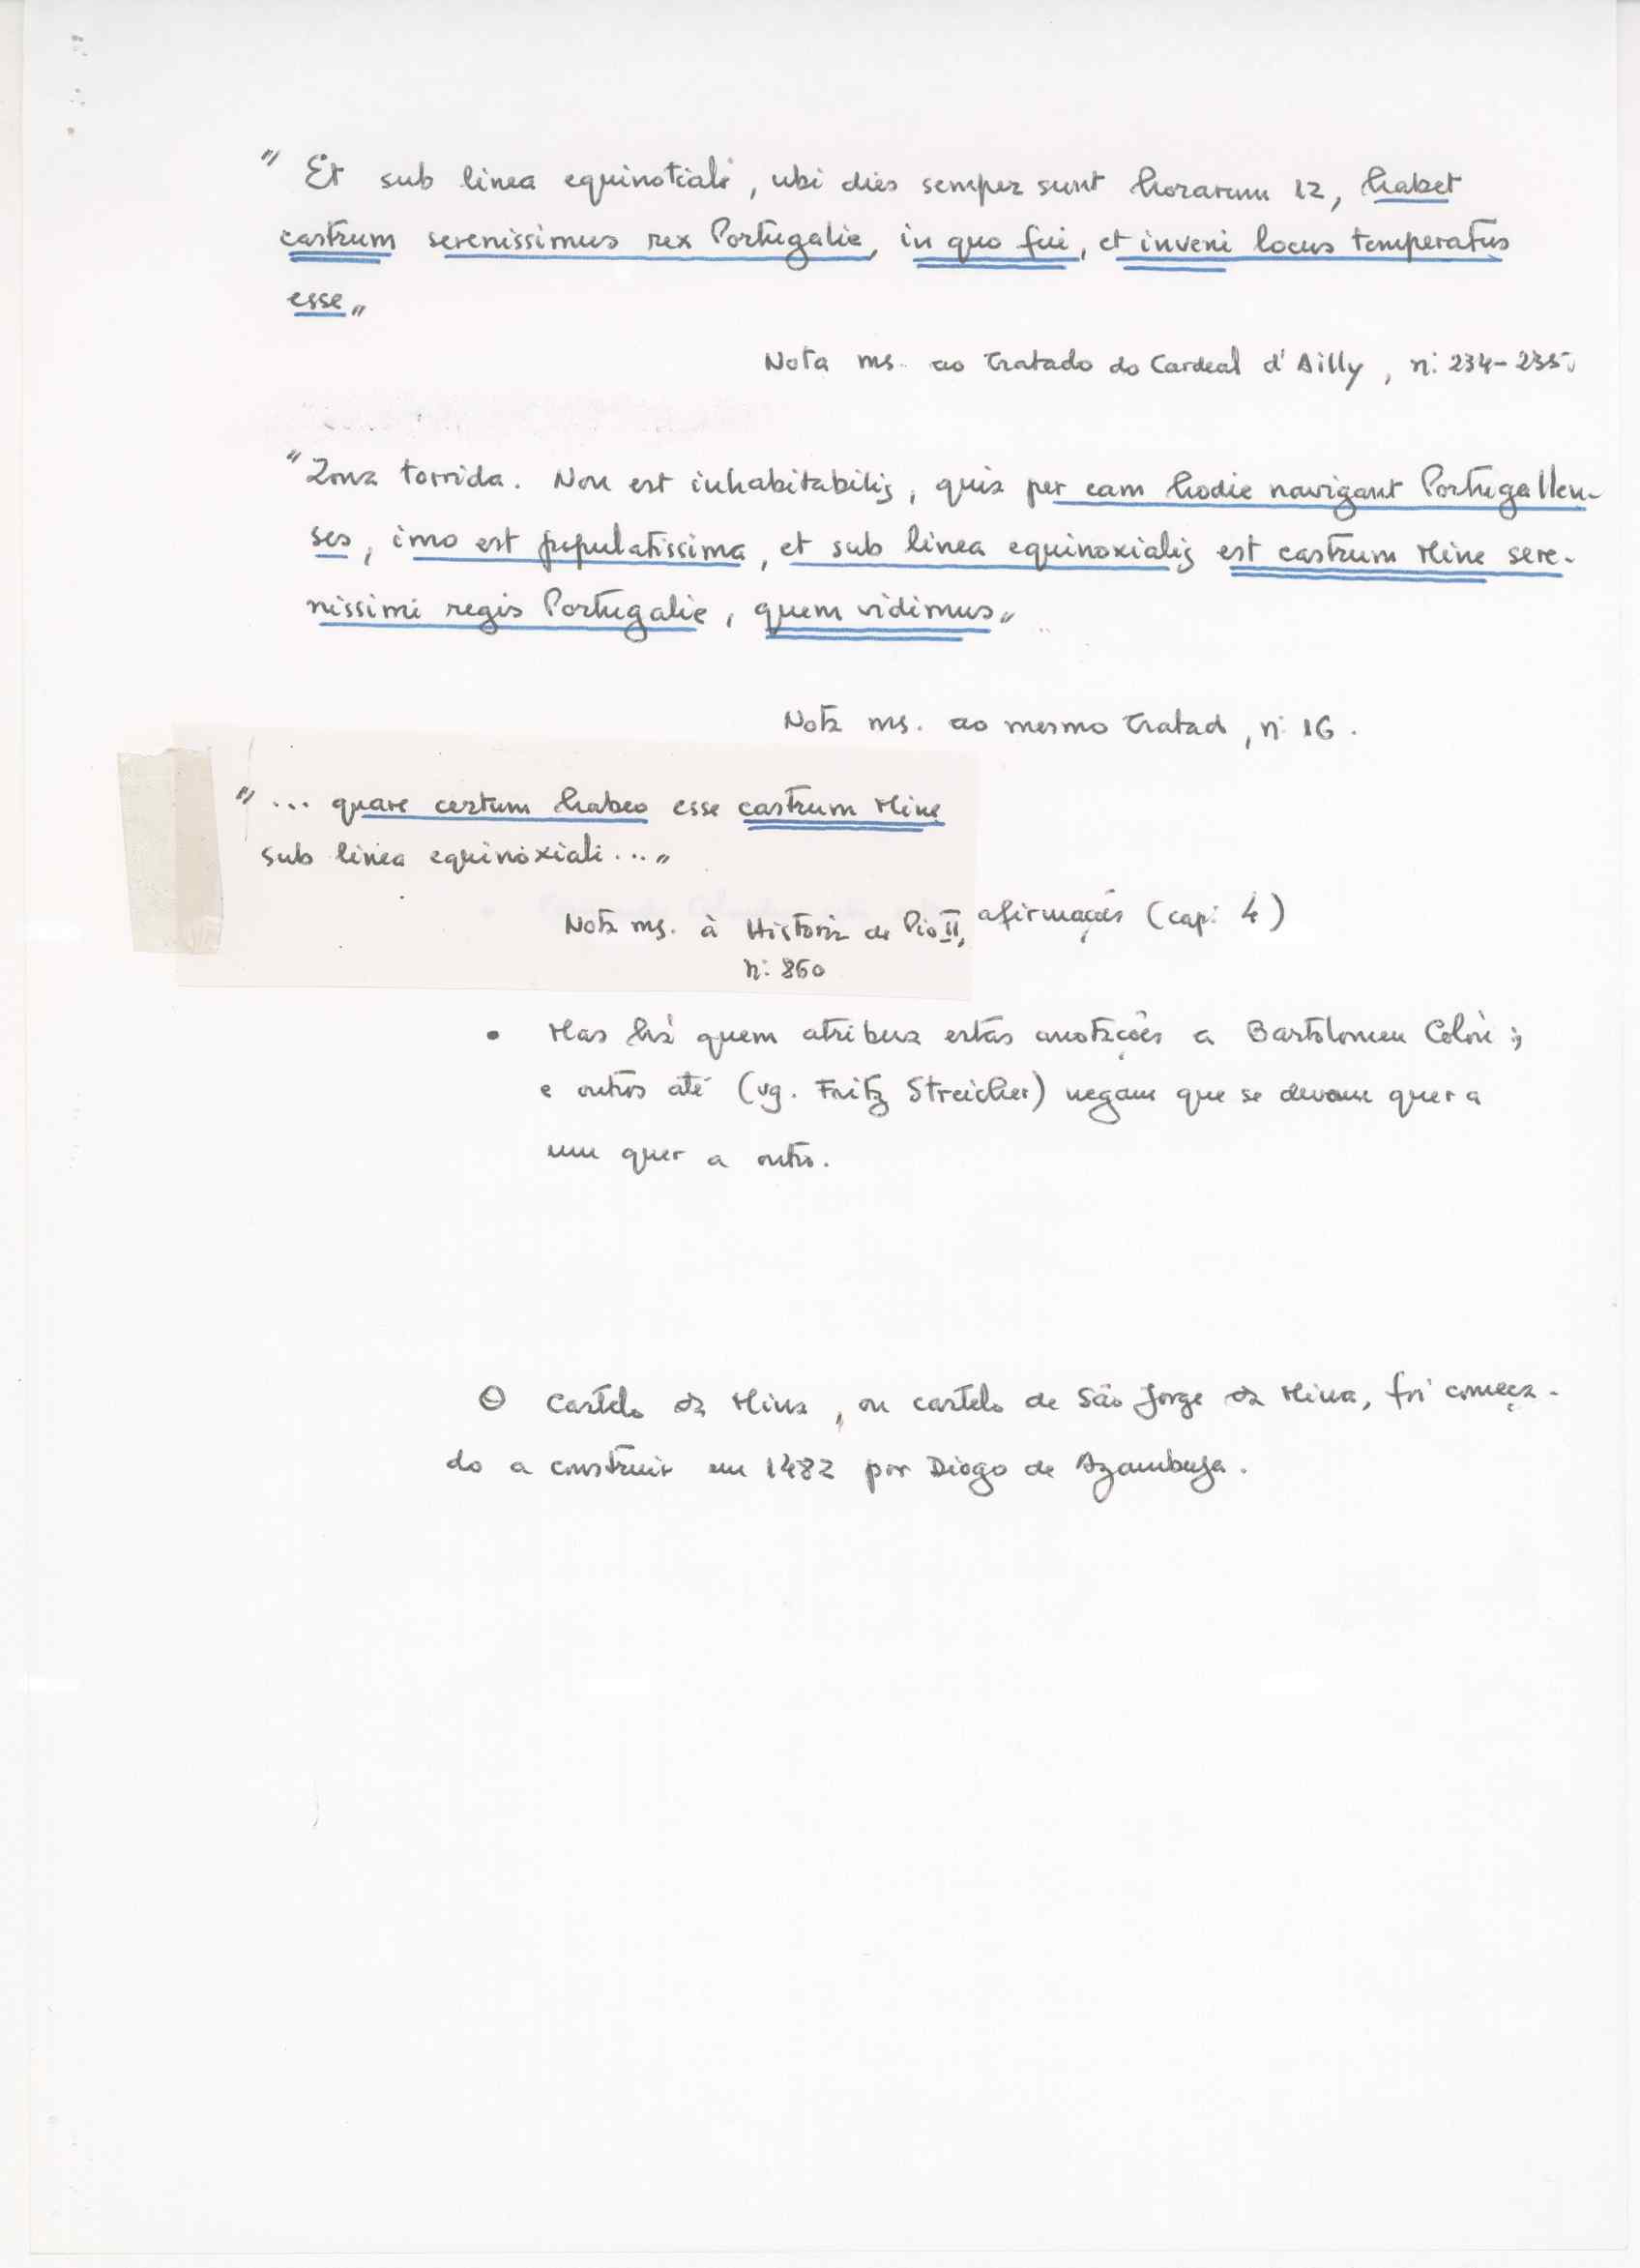 " Et sub linea equinotiali, ubi dies semper sunt horarum 12, habet
castrum serenissimus rex Portugalie, in quo fui, et inveni locus temperatus
esse "
Nota ms. ao tratado do Cardeal d'Ailly, n: 234-235.
"Zona torrida. Non est inhabitabilis, quia per eam hodie navigant Portugallen-
ses, imo est populatissima, et sub linea equinoxialis est castrum Mine sere-
nissimi regis Portugalie, quem vidimus"
Nota ms. ao mesmo tratad, n: 16.
" ... quare certum habeo esse castrum Mine
sub linea equinoxiali ... "
Nota ms. à Historia de Pio II, afirmações (cap: 4)
n: 860
• Mas há quem atribua estas anotações a Bartolomeu Colón;
e outros até (vg. Fritz Streicher) negam que se devam quer a
um quer a outro.
O Castelo da Mina, ou castelo de São Jorge da Mina, foi começa-
do a construir em 1482 por Diogo de Azambuja.